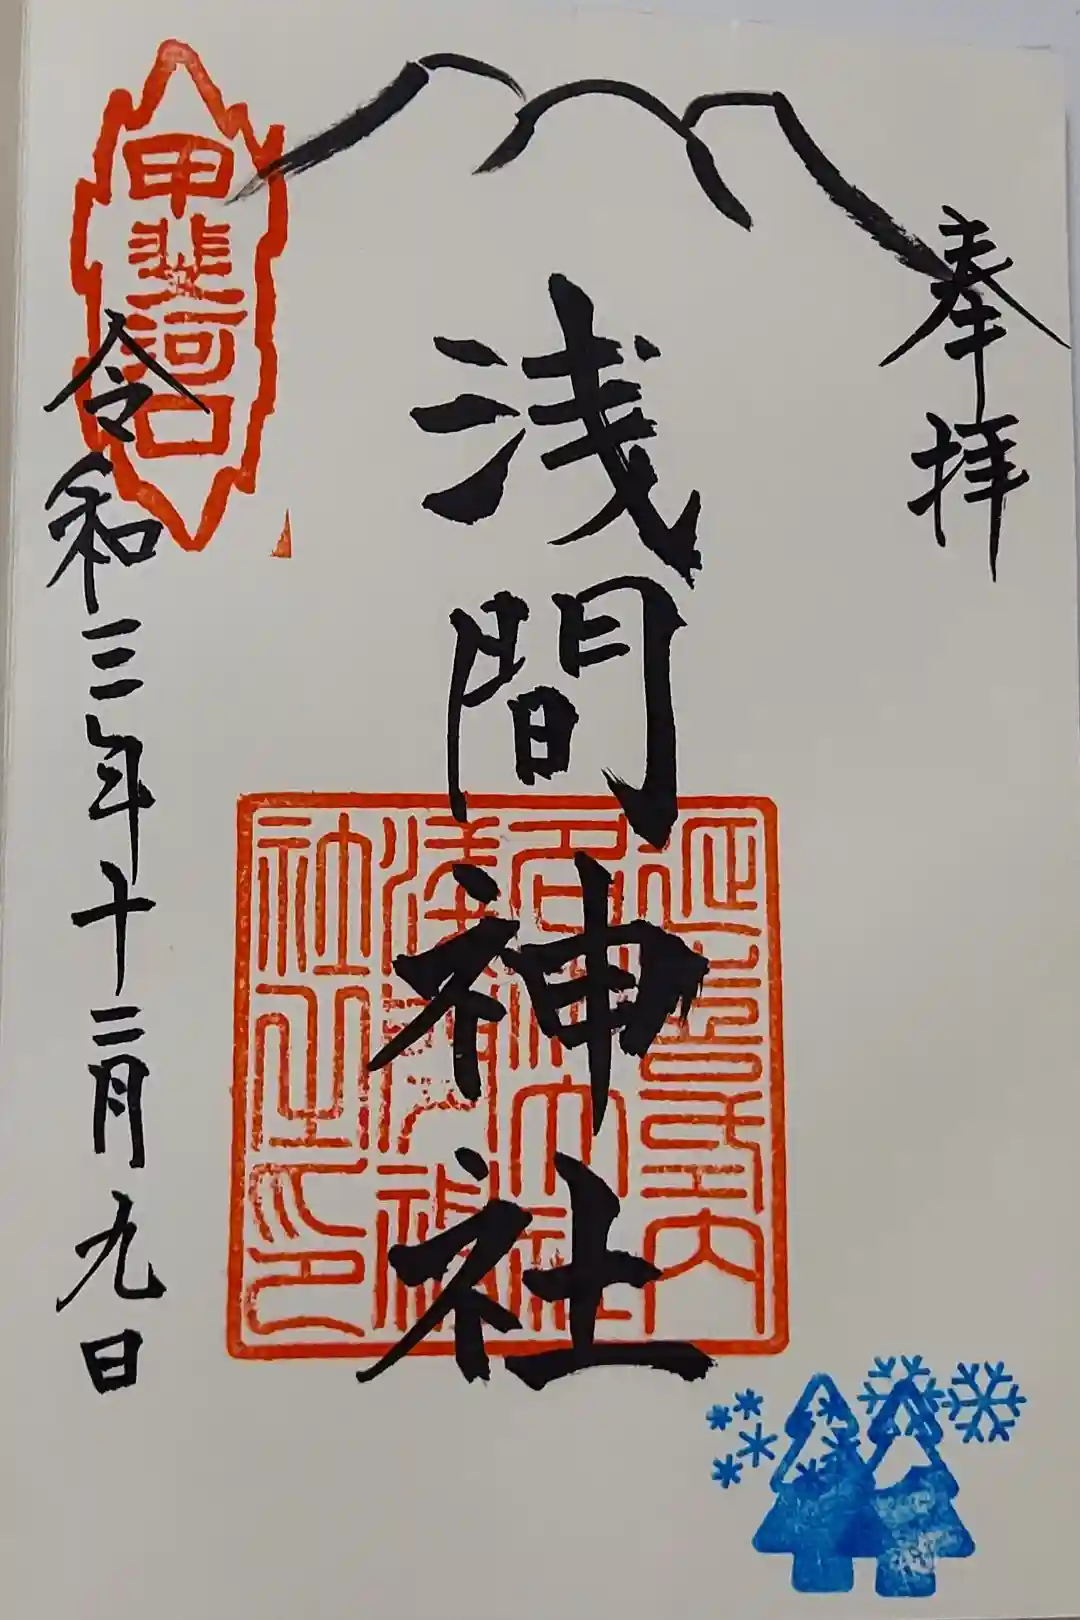 奉拝
浅間神社
延喜式内
名神大社
浅間神
社之印
甲斐河口
令和三年十二月九日